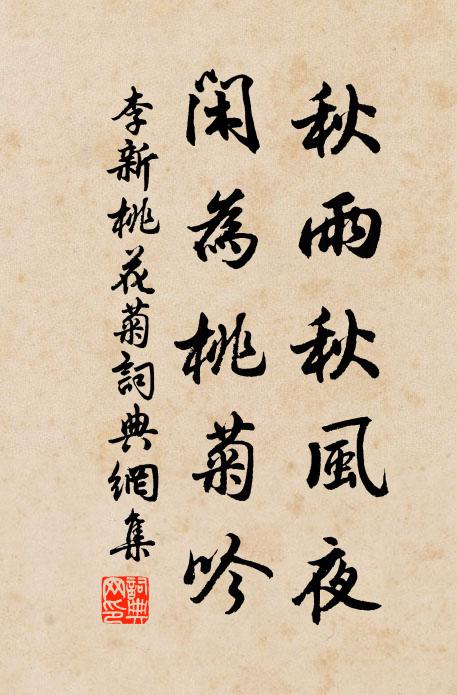 秋雨秋風夜
閑為桃菊吟
李新桃花菊詞典網集
詞典
网印